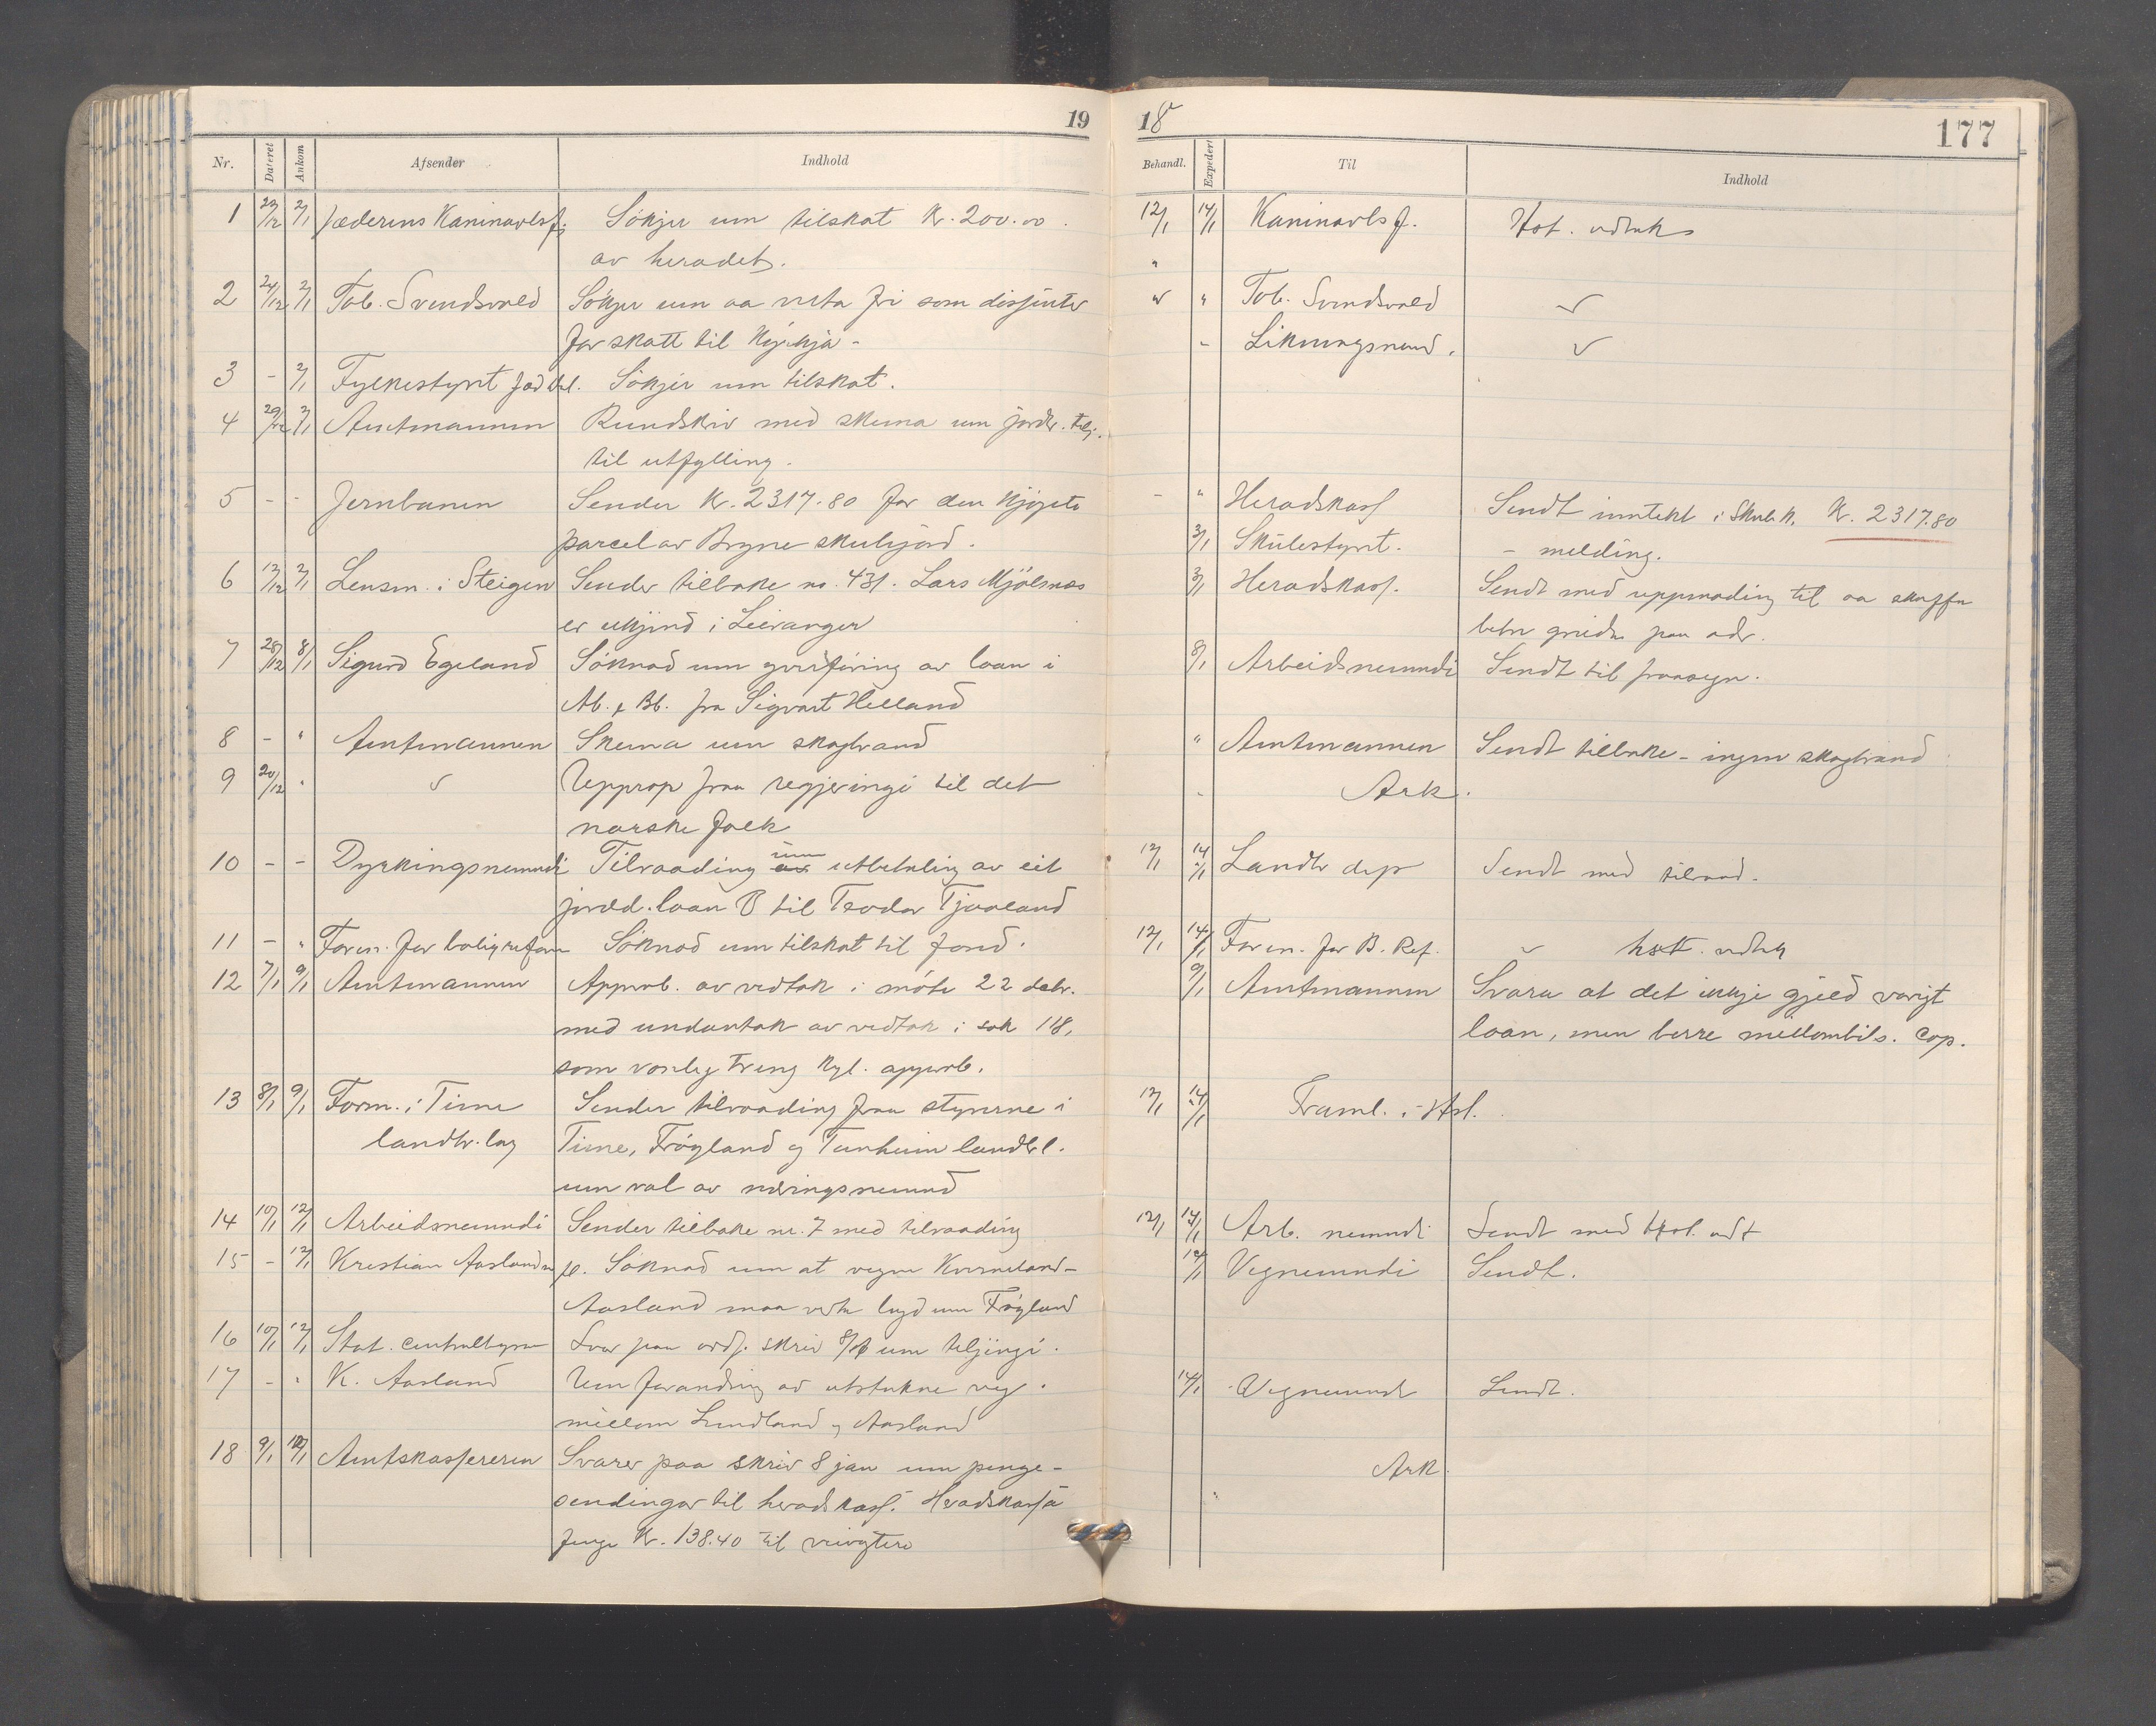 19
Nr. Dateret Ankom Afsender Indhold
1 23/12 2/1 Jæderens Kaninavlsf. Sökjer um tilskot Kr. 200.00
av heradet.
2 24/12 2/1 Tob. Svendsvold Sökjer um aa verta fri som dissenter
for skatt til Kyrkja -
3 - 2/1 Fylkestyret Sökjer um tilskot.
4 29/12 2/1 Amtmannen Rundskriv med skema um
til utfylling.
5 - - Jernbanen Sender Kr. 2317.80 for den kjöpte
parcel av Bryne skulejord.
6 12/12 2/1 Lensm. i Steigen Sender tilbake no. 431. Lars Mjölsnes
er ukjend i Leiranger
7 28/12 8/1 Sigurd Egeland Söknad um yverföring av laan i
Ab. & Bb. fra Sigvart Helland
8 - " Amtmannen Skema um skogbrand
9 20/12 " Upprop fraa regjeringi til det
norske folk
10 - - Dyrkingsnemndi Tilraading um av utbetaling av eit
jordd. laan B til Teodor Tjaaland
11 - " Foren. for boligreform Söknad um tilskot til fond.
12 7/1 9/1 Amtmannen Approb. av vedtak i möte 22 debr.
med undantak av vedtak i sak 118,
som vonleg treng Kgl. approb.
13 8/1 9/1 Form. i Time Sender tilraading fraa styrerne i
landbr. lag Time, Fröyland og Tunheim landbl.
um val av næringsnemnd
14 10/1 12/1 Arbeidsnemndi Sender tilbake nr. 7 med tilraading
15 - 12/1 Kristian Aasland m fl. Söknad um at vegen Kverneland-
Aasland maa verta lagd um Fröyland
16 10/1 12/1 Stat. centralbyraa Svar paa ordf. skriv 8/1 um teljingi.
17 - " K. Aasland Um forandring av utstukne veg
millom Lundland og Aasland
18 9/1 12/1 Amtskassereren Svarer paa skriv 8 jan um penge-
sendingar til heradskass. Heradskassa
Kr. 138.40 til
18
177
Behandl. Expedert Til Indhold
12/1 14/1 Kaninavlsf. Hst. vedtak
"
" " Tob. Svendsvold
- Likningsnemd.
- " Heradskass Sendt inntekt i Skulek. Kr. 2317.80
3/1 Skulestyret. - melding.
3/1 Heradskass. Sendt med uppmoding til aa skaffa
betre greide paa adr.
8/1 Arbeidsnemndi Sendt til fraasegn.
" Amtmannen Sendt tilbake - ingen skogbrand
- Ark.
12/1 14/1 Landbr dep Sendt med tilraad.
12/1 14/1 Foren. for B. Ref. hst. vedtak
9/1 Amtmannen Svara at det ikkje gjeld varigt
laan, men berre mellombils. Cop.
12/1 14/1 Framl. i Hst.
12/1 14/1 Arb. nemndi Sendt med Hst. vedt
12/1 Vegnemndi Sendt.
14/1 Vegnemnd Sendt.
Ark.
"